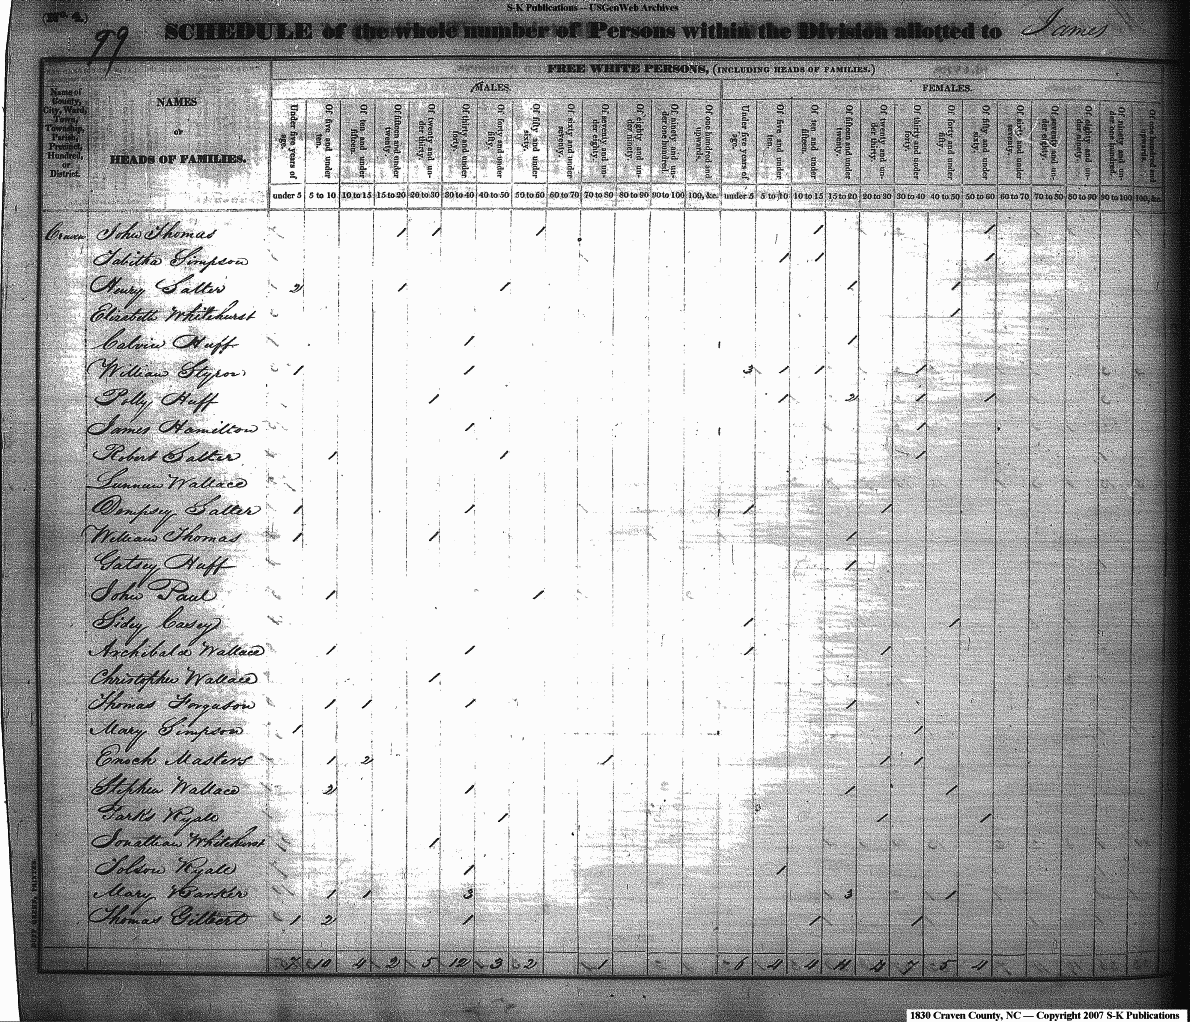 S-K Publications -- USGenWeb Archives
(No. 4.)
99 SCHEDULE of the whole number of Persons within the Division allotted to James
FREE WHITE PERSONS, (INCLUDING HEADS OF FAMILIES.)
MALES. FEMALES.
Name of County, City, Ward, Town, Township, Parish, Precinct, Hundred, or District.
NAMES
OF
HEADS OF FAMILIES.
under 5 5 to 10 10 to 15 15 to 20 20 to 30 30 to 40 40 to 50 50 to 60 60 to 70 70 to 80 80 to 90 90 to 100 100, &c. under 5 5 to 10 10 to 15 15 to 20 20 to 30 30 to 40 40 to 50 50 to 60 60 to 70 70 to 80 80 to 90 90 to 100 100, &c.
Craven John Thomas 1 1 1 1 1
Tabitha Simpson 1 1 1
Henry Salter 2 1 1 1 1
Elizabeth Whitehurst 1
Calvin Huff 1 1
William Styron 1 1 3 1 1 1
Polly Huff 1 1 2 1 1
James Hamilton 1 1
Robert Salter 1 1 1
Wallace
Dempsey Salter 1 1 1 1
William Thomas 1 1 1
Gatsey Huff 1
John Paul 1 1
Sidey Casey 1 1
Archibald Wallace 1 1 1 1
Christopher Wallace 1
Thomas Forguson 1 1 1 1
Mary Simpson 1 1
Enoch Masters 1 2 1 1 1
Stephen Wallace 2 1 1 1
Ryall 1 1 1
Jonathan Whitehurst 1
Tolson Ryall 1 1
Mary 1 1 3 3 1
Thomas Gilbert 1 2 1 1 1
7 10 4 2 5 12 3 2 1 6 4 4 11 7 5 4
1830 Craven County, NC — Copyright 2007 S-K Publications